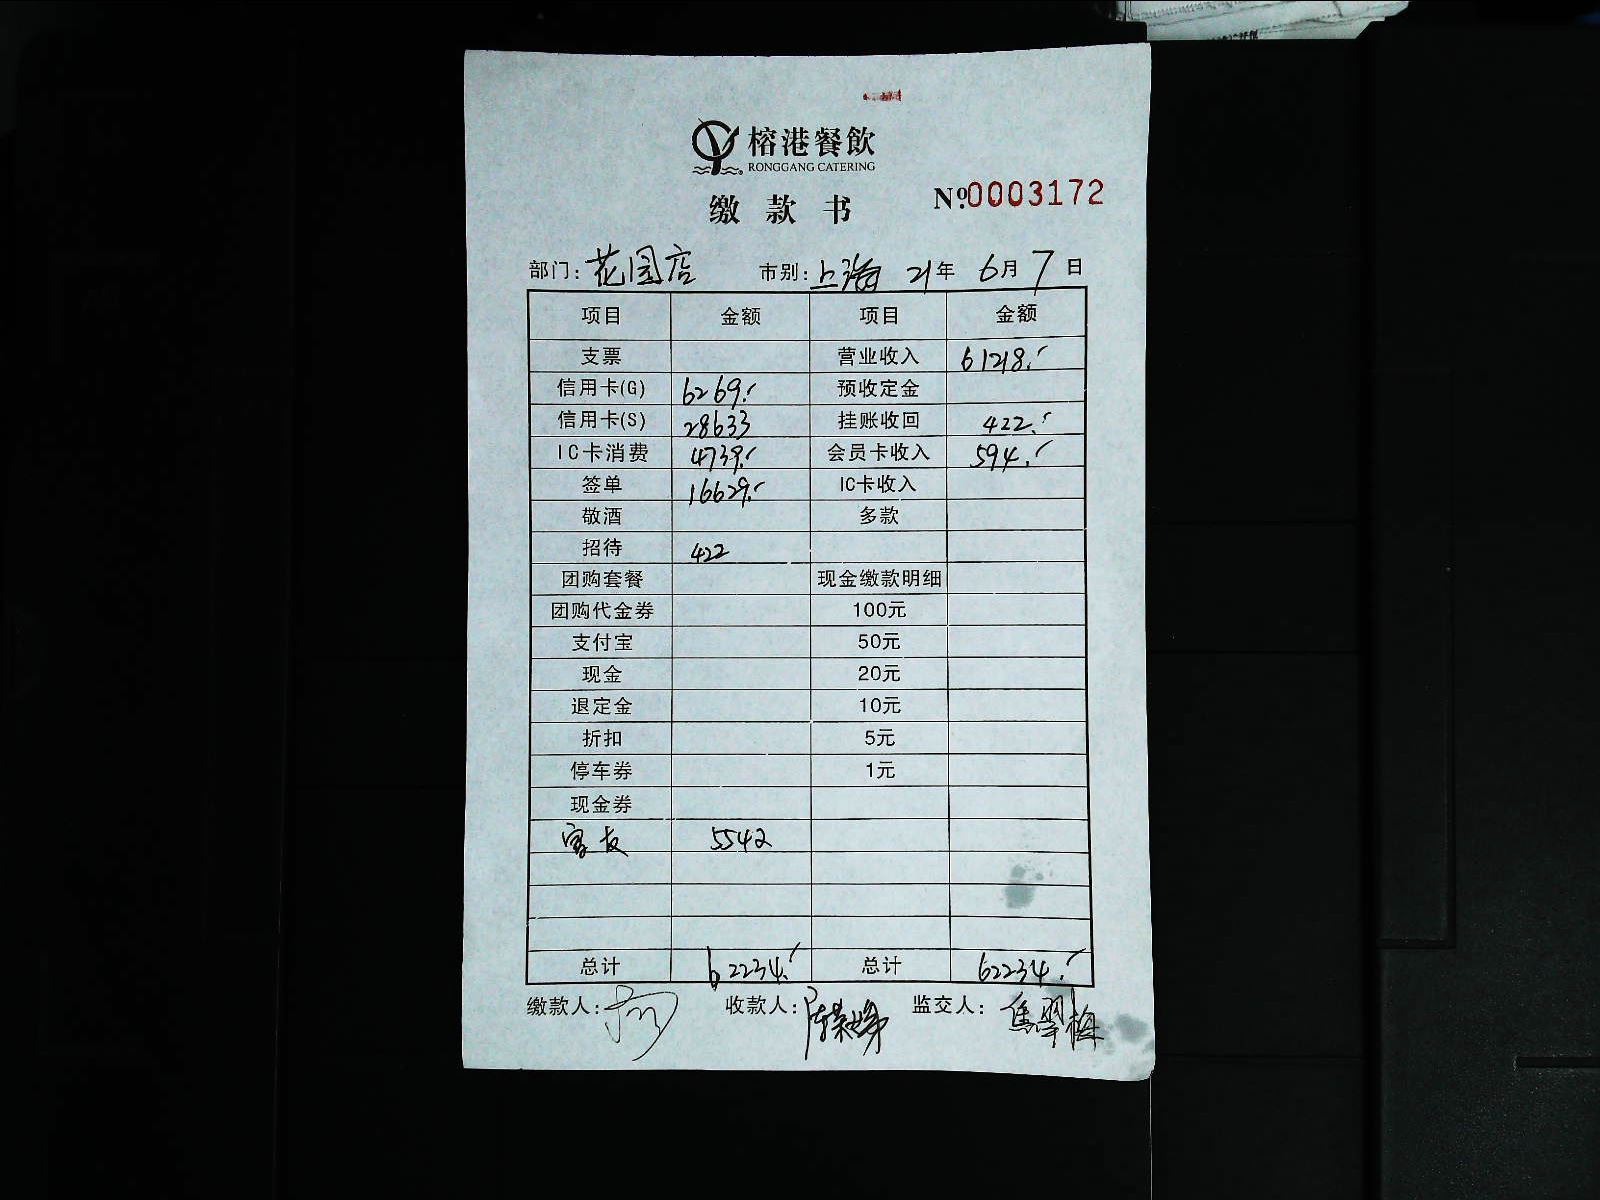 榕港餐飲
RONGGANG CATERING
缴款书
№0003172
部门：花园店 市别：上海 21年6月7日
项目 金额 项目 金额
支票 营业收入 61218.
信用卡(G) 6269. 预收定金
信用卡(S) 28633 挂账收回 422.
IC卡消费 4739. 会员卡收入 594.
签单 16629. IC卡收入
敬酒 多款
招待 422
团购套餐 现金缴款明细
团购代金券 100元
支付宝 50元
现金 20元
退定金 10元
折扣 5元
停车券 1元
现金券
5542
总计 62234. 总计 62234.
缴款人： 收款人： 监交人：焦翠梅